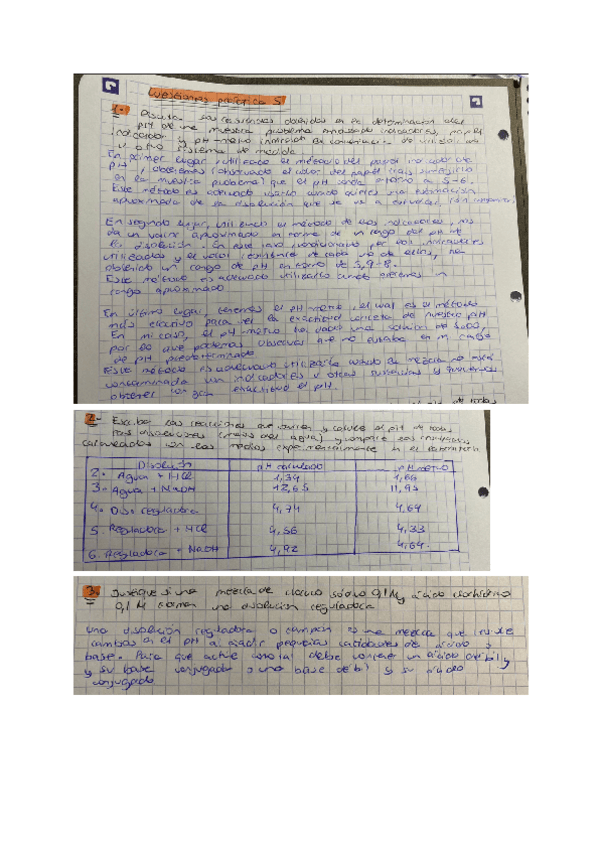 Cuestiones práctica 5
1.- Discuta los resultados obtenidos en la determinación del
pH de una muestra problema empleando indicadores, papel
indicador y pH-metro
u otro sistema de medida
En primer lugar, utilizando el método del papel indicador de
pH, obtenemos (observando el color del papel
en la muestra problema) que el pH 5-6.
Este método es adecuado usarlo cuando quieres una estimación
aproximada de la disolución que se va a
En segundo lugar, utilizando el método de los indicadores, nos
da un valor aproximado en torno de un rango del pH de
la disolución. En este caso, por los indicadores
utilizados y el color de cada uno de ellos, he
obtenido un rango de pH en torno de
Este método es adecuado utilizarlo
rango aproximado
En último lugar, tenemos el pH-metro, el cual es el método
más efectivo para ver la exactitud concreta de nuestro pH
En mi caso, el pH-metro ha dado una solución de
por lo que podemos observar que no estaba en mi rango
de pH predeterminado
Este método es adecuado utilizarlo cuando la mezcla no está
contaminada con indicadores u otras sustancias y queremos
obtener con gran exactitud el pH.
2.- Escriba las reacciones que ocurren y calcule el pH de todas
las disoluciones (menos del agua) y compare los
calculados con los medidos experimentalmente en el laboratorio
Disolución pH calculado pH-metro
2. Agua + HCl 1,34 1,66
3. Agua + NaOH 12,65 11,93
4. Dis. reguladora 4,74 4,64
5. Reguladora + HCl 4,56 4,33
6. Reguladora + NaOH 4,92 4,64.
3. Justifique si una mezcla de cloruro sódico 0,1 M y ácido clorhídrico
0,1 M forman una disolución reguladora
Una disolución reguladora o tampón es una mezcla que resiste
cambios en el pH al añadir pequeñas cantidades de ácido y
base. Para que actúe como tal debe contener un ácido débil y
y su base conjugada o una base débil y su ácido
conjugado